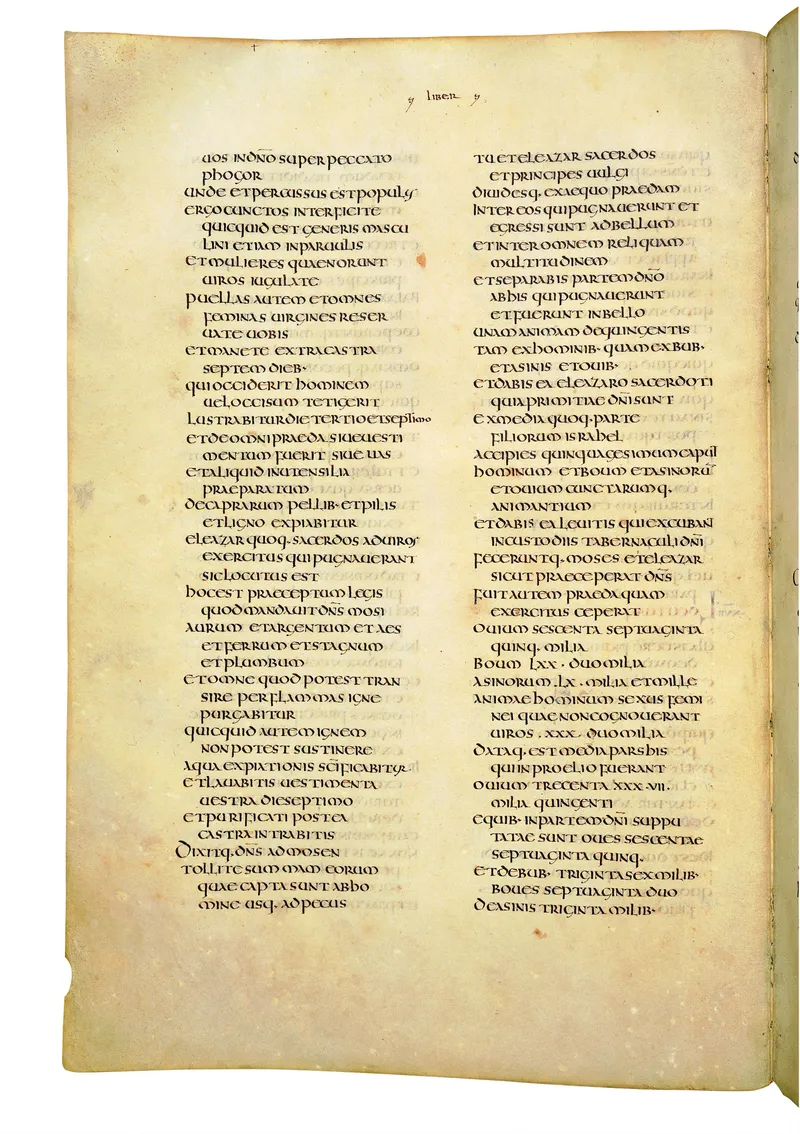 liber
uos in dn̄o super peccato
phogor
unde et percussus est populus
ergo cunctos interficite
quicquid est generis mascu
lini etiam in paruulis
et mulieres quae norunt
uiros iugulate
puellas autem et omnes
feminas uirgines reser
uate uobis
et manete extra castra
septem dieb·
qui occiderit hominem
uel occisum tetigerit
lustrabitur die tertio et septimo
et de omni praeda siue uesti
mentum fuerit siue uas
et aliquid in utensilia
praeparatum
de caprarum pellib· et pilis
et ligno expiabitur
eleazar quoq. sacerdos ad uiros
exercitus qui pugnauerant
sic locutus est
hoc est praeceptum legis
quod mandauit dn̄s mosi
aurum et argentum et aes
et ferrum et stagnum
et plumbum
et omne quod potest tran
sire per flammas igne
purgabitur
quicquid autem ignem
non potest sustinere
aqua expiationis sc̄ificabitur·
et lauabitis uestimenta
uestra die septimo
et purificati postea
castra intrabitis
Dixitq. dn̄s ad mosen
tollite summam eorum
quae capta sunt ab ho
mine usq. ad pecus
tu et eleazar sacerdos
et principes uulgi
diuidesq. ex aequo praedam
inter eos qui pugnauerunt et
egressi sunt ad bellum
et inter omnem reliquam
multitudinem
et separabis partem dn̄o
ab his qui pugnauerunt
et fuerunt in bello
unam animam de quingentis
tam ex hominib· quam ex bub·
et asinis et ouib·
et dabis ea eleazaro sacerdoti
quia primitiae dn̄i sunt
ex media quoq. parte
filiorum israhel
accipies quinquagesimum caput
hominum et boum et asinorū
et ouium cunctarumq.
animantium
et dabis ea leuitis qui excubant
in custodiis tabernaculi dn̄i
feceruntq. moses et eleazar
sicut praeceperat dn̄s
fuit autem praeda quam
exercitus ceperat
ouium sescenta septuaginta
quinq. milia
boum lxx · duo milia
asinorum .lx . milia et mille
animae hominum sexus femi
nei quae non cognouerant
uiros .xxx. duo milia
dataq. est media pars his
qui in proelio fuerant
ouium trecenta xxx·vii.
milia quingenti
e quib· in partem dn̄i suppu
tatae sunt oues sescentae
septuaginta quinq.
et de bub· triginta sex milib·
boues septuaginta duo
de asinis triginta milib·